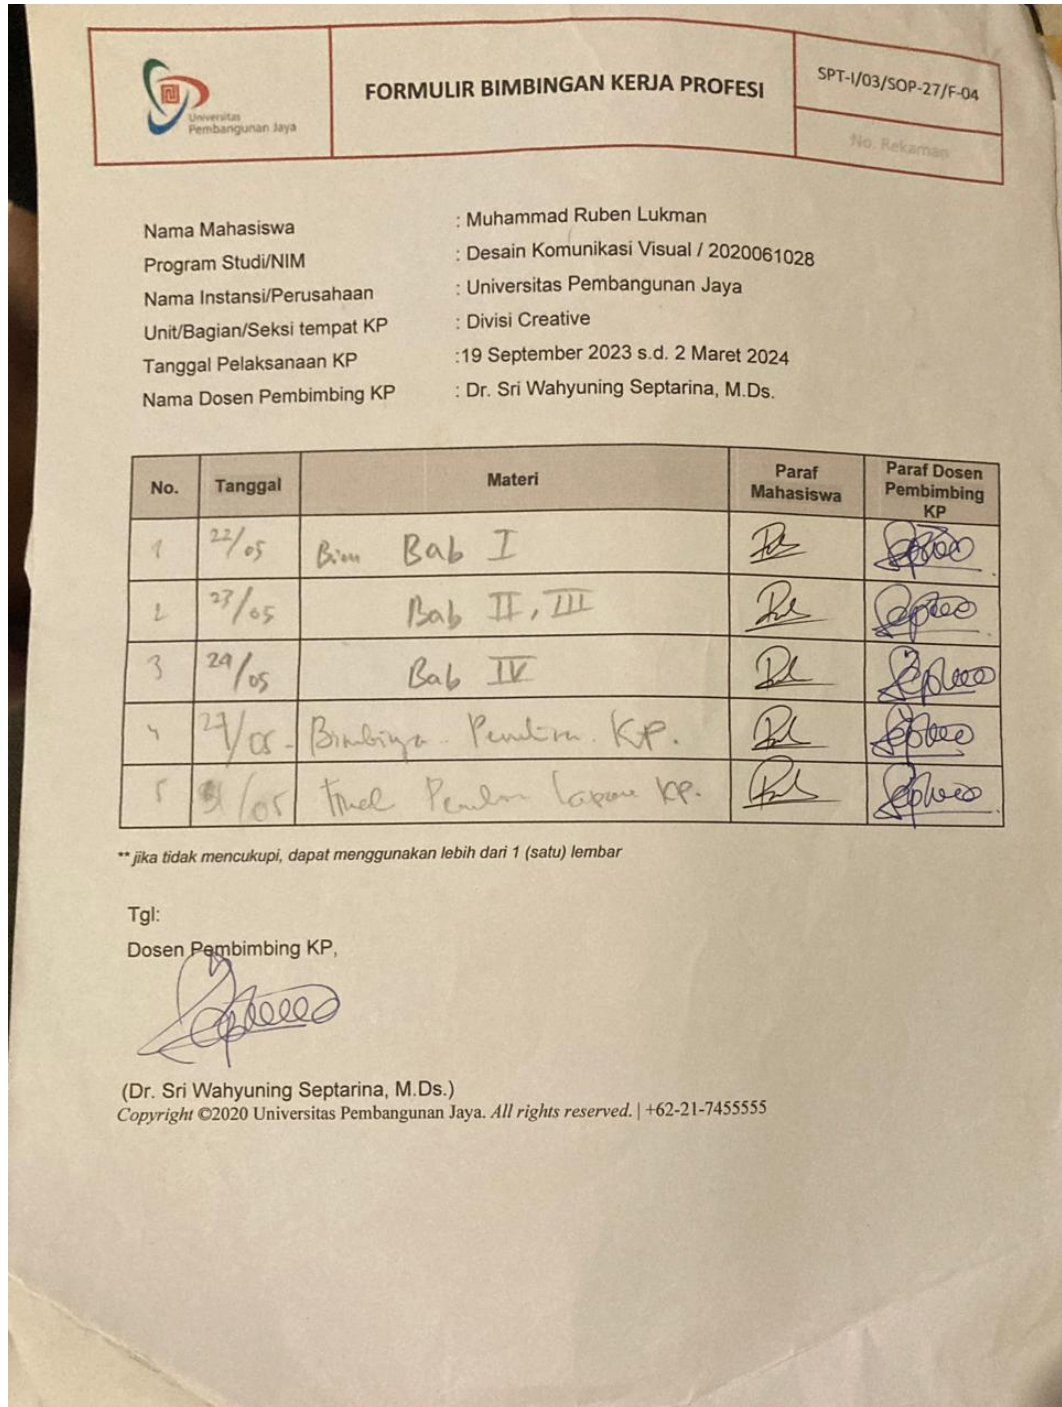 Universitas
Pembangunan Jaya
FORMULIR BIMBINGAN KERJA PROFESI
SPT-I/03/SOP-27/F-04
No. Rekaman
Nama Mahasiswa : Muhammad Ruben Lukman
Program Studi/NIM : Desain Komunikasi Visual / 2020061028
Nama Instansi/Perusahaan : Universitas Pembangunan Jaya
Unit/Bagian/Seksi tempat KP : Divisi Creative
Tanggal Pelaksanaan KP :19 September 2023 s.d. 2 Maret 2024
Nama Dosen Pembimbing KP : Dr. Sri Wahyuning Septarina, M.Ds.
No. Tanggal Materi Paraf Mahasiswa Paraf Dosen Pembimbing KP
1 22/05 Bim Bab I
2 23/05 Bab II, III
3 /05 Bab IV
4 27/05 - KP.
5 /05 KP.
** jika tidak mencukupi, dapat menggunakan lebih dari 1 (satu) lembar
Tgl:
Dosen Pembimbing KP,
(Dr. Sri Wahyuning Septarina, M.Ds.)
Copyright ©2020 Universitas Pembangunan Jaya. All rights reserved. | +62-21-7455555